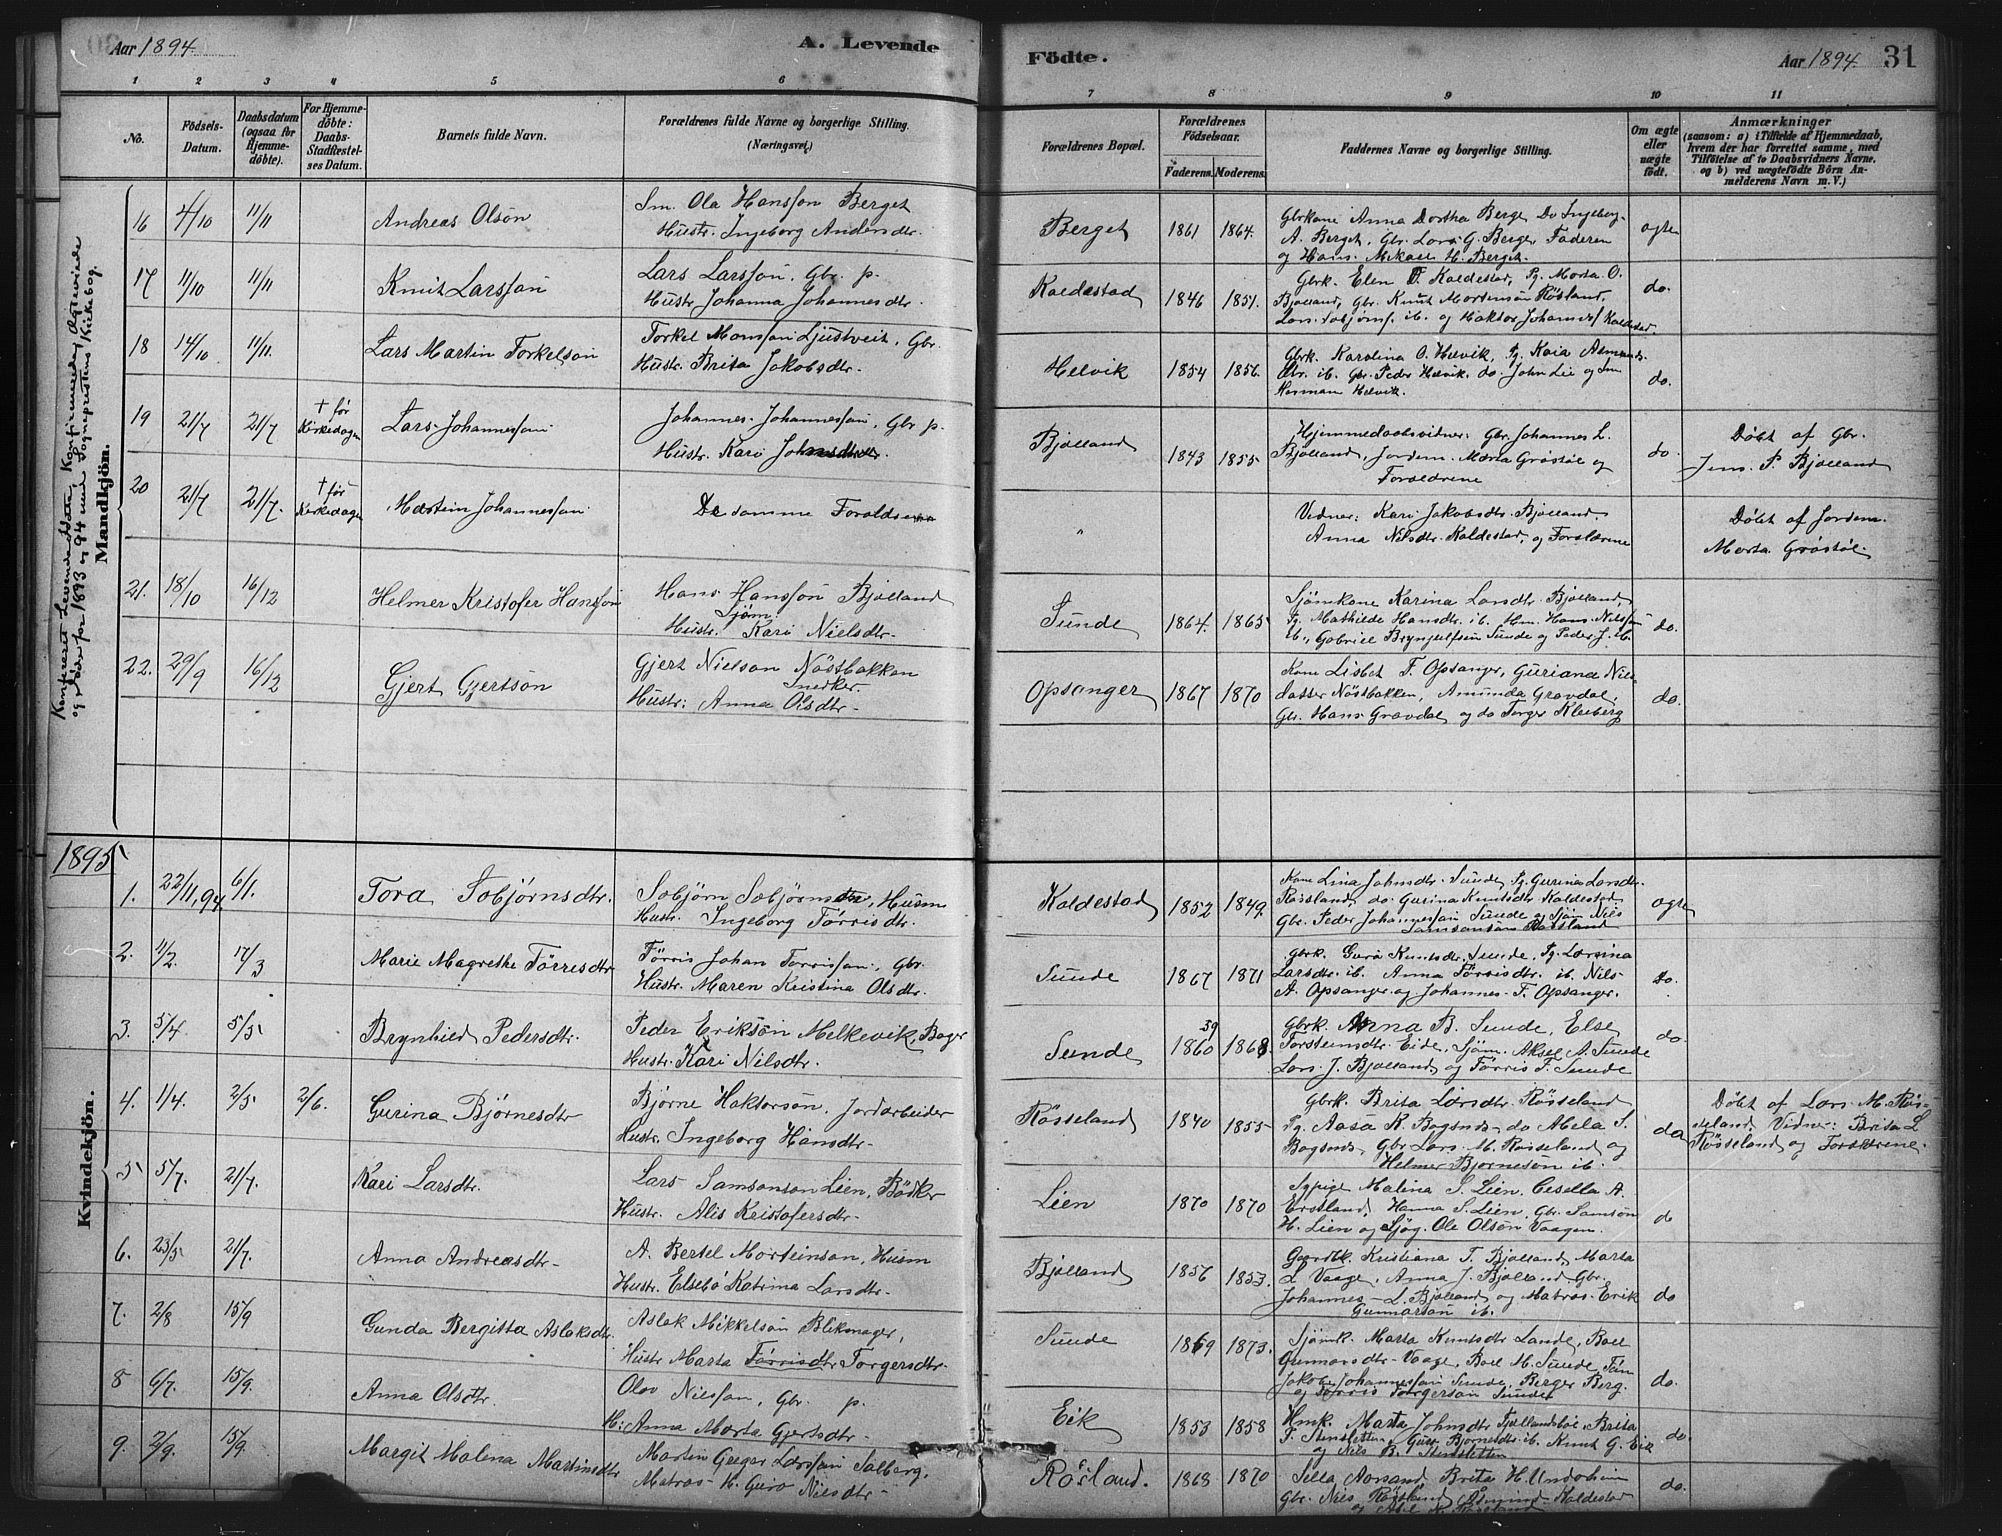 Aar 1894. A. Levende
Födte. Aar 1894. 31
1 2 3 4 5 6 7 8 9 10 11
No.
Födsels-Datum.
Daabsdatum (ogsaa for Hjemmedöbte).
For Hjemmedöbte: Daabs-Stadfæstelses Datum.
Barnets fulde Navn.
Forældrenes fulde Navne og borgerlige Stilling. (Næringsvei)
Forældrenes Bopæl.
Forældrenes Födselsaar.
Faderens. Moderens.
Faddernes Navne og borgerlige Stilling.
Om ægte eller uægte födt.
Anmærkninger
(saasom: a) i Tilfælde af Hjemmedaab,
hvem der har forrettet samme, med
Tilföielse af to Daabsvidners Navne.
og b) ved uægtefödte Börn An-
melderens Navn m. V.)
Konfereret Levendefødte, Konfirmerede, Ægteviede
og døde for 1893 og 94 med Sognepræstens Kirkebog.
Mandkjön.
16 4/10 11/11 Andreas Olsön
Sm. Ola Hansson Berget
Hustr. Ingeborg Andersdtr.
Berget 1861 1864.
Gbrkone Anna Dortha Berge, Do Ingeborg
A. Berget, Gbr. Lars G. Berge, Faderen
og Hans Mikael H. Berget.
ægte
17 11/10 11/11 Knut Larsson
Lars Larsson, Gbr. p.
Hustr. Johanna Johannesdtr.
Kaldestad 1846 1851.
Gbrk. Elen T. Kaldestad, Pg. Marta O.
Bjølland, Gbr. Knut Mortensön Røsland,
ib. og Haktor Johannesf Kaldestad.
do.
18 14/10 11/11. Lars Martin Torkelson
Torkel Monsson Ljustveit, Gbr.
Hustr. Brita Jakobsdtr.
Helvik 1854 1856.
Gbrk. Karolina O. Helvik, Pg. Kaia Asmunds-
dtr. ib. Gbr. Peder Helvik, do. John Lie og Sm
Herman Helvik.
do.
19 21/7 21/7 † før Kirkedagen Lars Johannesson
Johannes Johannesson, Gbr p.
Hustr. Kari Johnsdtr.
Bjølland 1843 1855
Hjemmedaabsvidner: Gbr. Johannes L.
Bjølland, Jordem. Marta Grøstøl og
Forældrene
do.
Døbt af Gbr.
Jens P. Bjølland
20 21/7 21/7. † før Kirkedagen Martein Johannesson
De samme Forældre
"
Vidner: Kari Jakobsdtr. Bjølland
Anna Nilsdtr. Kaldestad, og Forældrene
Døbt af Jordem.
Marta Grøstøl
21. 18/10 16/12 Helmer Kristofer Hansson
Hans Hansson Bjølland
Sjøm.
Hustr. Kari Nielsdtr.
Sunde 1864. 1865
Sjømkone Karina Larsdtr. Bjølland,
Pg. Mathilde Hansdtr. ib. Hm. Hans Nilsson
ib., Gabriel Brynjulfsen Sunde og Peder J. ib.
do.
22. 29/9 16/12 Gjert Gjertsön
Gjert Nielson Nöstbakken
Snedker.
Hustr: Anna Olsdtr.
Opsanger 1867 1870
Kone Lisbet T. Opsanger, Guriane Nils-
datter Nöstbakken, Amunda Gravdal,
Gbr. Hans Gravdal og do Torger Kleiberg
do.
1895
Kvindekjön.
1. 22/11,94 6/1. Tora Sobjørnsdtr.
Sobjørn Sobjørns, Husm
Hustr. Ingeborg Tørrisdtr.
Kaldestad 1852 1849.
Kone Lina Johnsdtr. Sunde, Pg. Gurina Larsdtr.
Røssland, do. Gurina Knutsdtr. Kaldestad
Gbr. Peder Johannesson Sunde og Sjøm Nils
Samsonsön Røssland
ægte
2. 11/2. 17/3 Marie Magrethe Tørrisdtr
Tørris Johan Tørrisson, Gbr.
Hustr. Maren Kristina Olsdtr.
Sunde 1867 1871
Gbrk. Guri Knutsdtr. Sunde, Pg. Larsina
Larsdtr. ib. Anna Tørrisdtr. ib. Nils
A. Opsanger og Johannes T. Opsanger.
do.
3. 5/4. 5/5 Brynhild Pedersdtr.
Peder Eriksön Melkevik, Bager
Hustr. Kari Nilsdtr.
Sunde 1860 39 1868.
Gbrk. Anna B. Sunde, Else
Torsteinsdtr. Eide, Sjøm. Aksel A. Sunde
Lars J. Bjølland og Tørris T. Sunde
do.
4. 1/4. 2/5 2/6. Gurina Bjørnesdtr
Bjørne Haktorsön, Jordarbeider
Hustr. Ingeborg Hansdtr.
Røsseland 1840 1855
Gbrk. Brita Larsdtr. Røsseland
Pg. Aasa K. Bogsnes, do Mela S.
Bogsnes, Gbr. Lars M. Røsseland og
Helmer Bjørnesön ib.
do
Døbt af Lars M. Røs-
seland Vidner: Brita L.
Røsseland og Forældrene.
5 5/7. 21/7. Kari Larsdtr.
Lars Samsonson Lien, Bødker
Hustr. Alis Kristofersdtr.
Lien 1870 1870
Sypige Malina S. Lien, Cesella A.
Erstland, Hanna S. Lien, Gbr. Samsön
H. Lien og Sjøg. Ole Olsön Vaagen.
do
6. 23/5 21/7. Anna Andreasdtr
A. Bertel Morteinson, Husm
Hustr. Elsebø Katrina Larsdtr.
Bjølland 1856 1853.
Kristiana T. Bjølland, Marta
L. Vaage, Anna J. Bjølland, Gbr.
Johannes L. Bjølland og Matros Erik
Gunnarson ib.
do
7. 2/8 15/9 Gunda Bergitta Aslaksdtr.
Aslak Mikkelsön Bliksmager,
Hustr Marta Tørrisdtr Torgersdtr.
Sunde 1869 1873.
Sjømk. Marta Knutsdtr Lande, Boel
Gunnarsdtr Vaage, Boel M. Sunde,
Jakob Johannesson Sunde, Berger Berg.
og Tørris Torgerson Sunde
do.
8 6/7. 15/9. Anna Olsdtr.
Olav Nilsson, Gbr. p.
H: Anna Marta Gjertsdtr.
Eik 1853 1858
Hmk. Marta Johnsdtr Fjellandsbøe, Brita
T. Stensletten, Guri Bjørnesdtr ib. Knut G. Eik
og Nils B. Stensletten
do.
9. 2/9. 15/9. Margit Malena Martinsdtr
Martin Greger Larsson Salberg,
Matros H. Guro Nilsdtr
Røsland. 1868 1870
Sella Aarsand, Brita H. Undarheim
Gbr. Nils Røsland, Kaldestad
do.